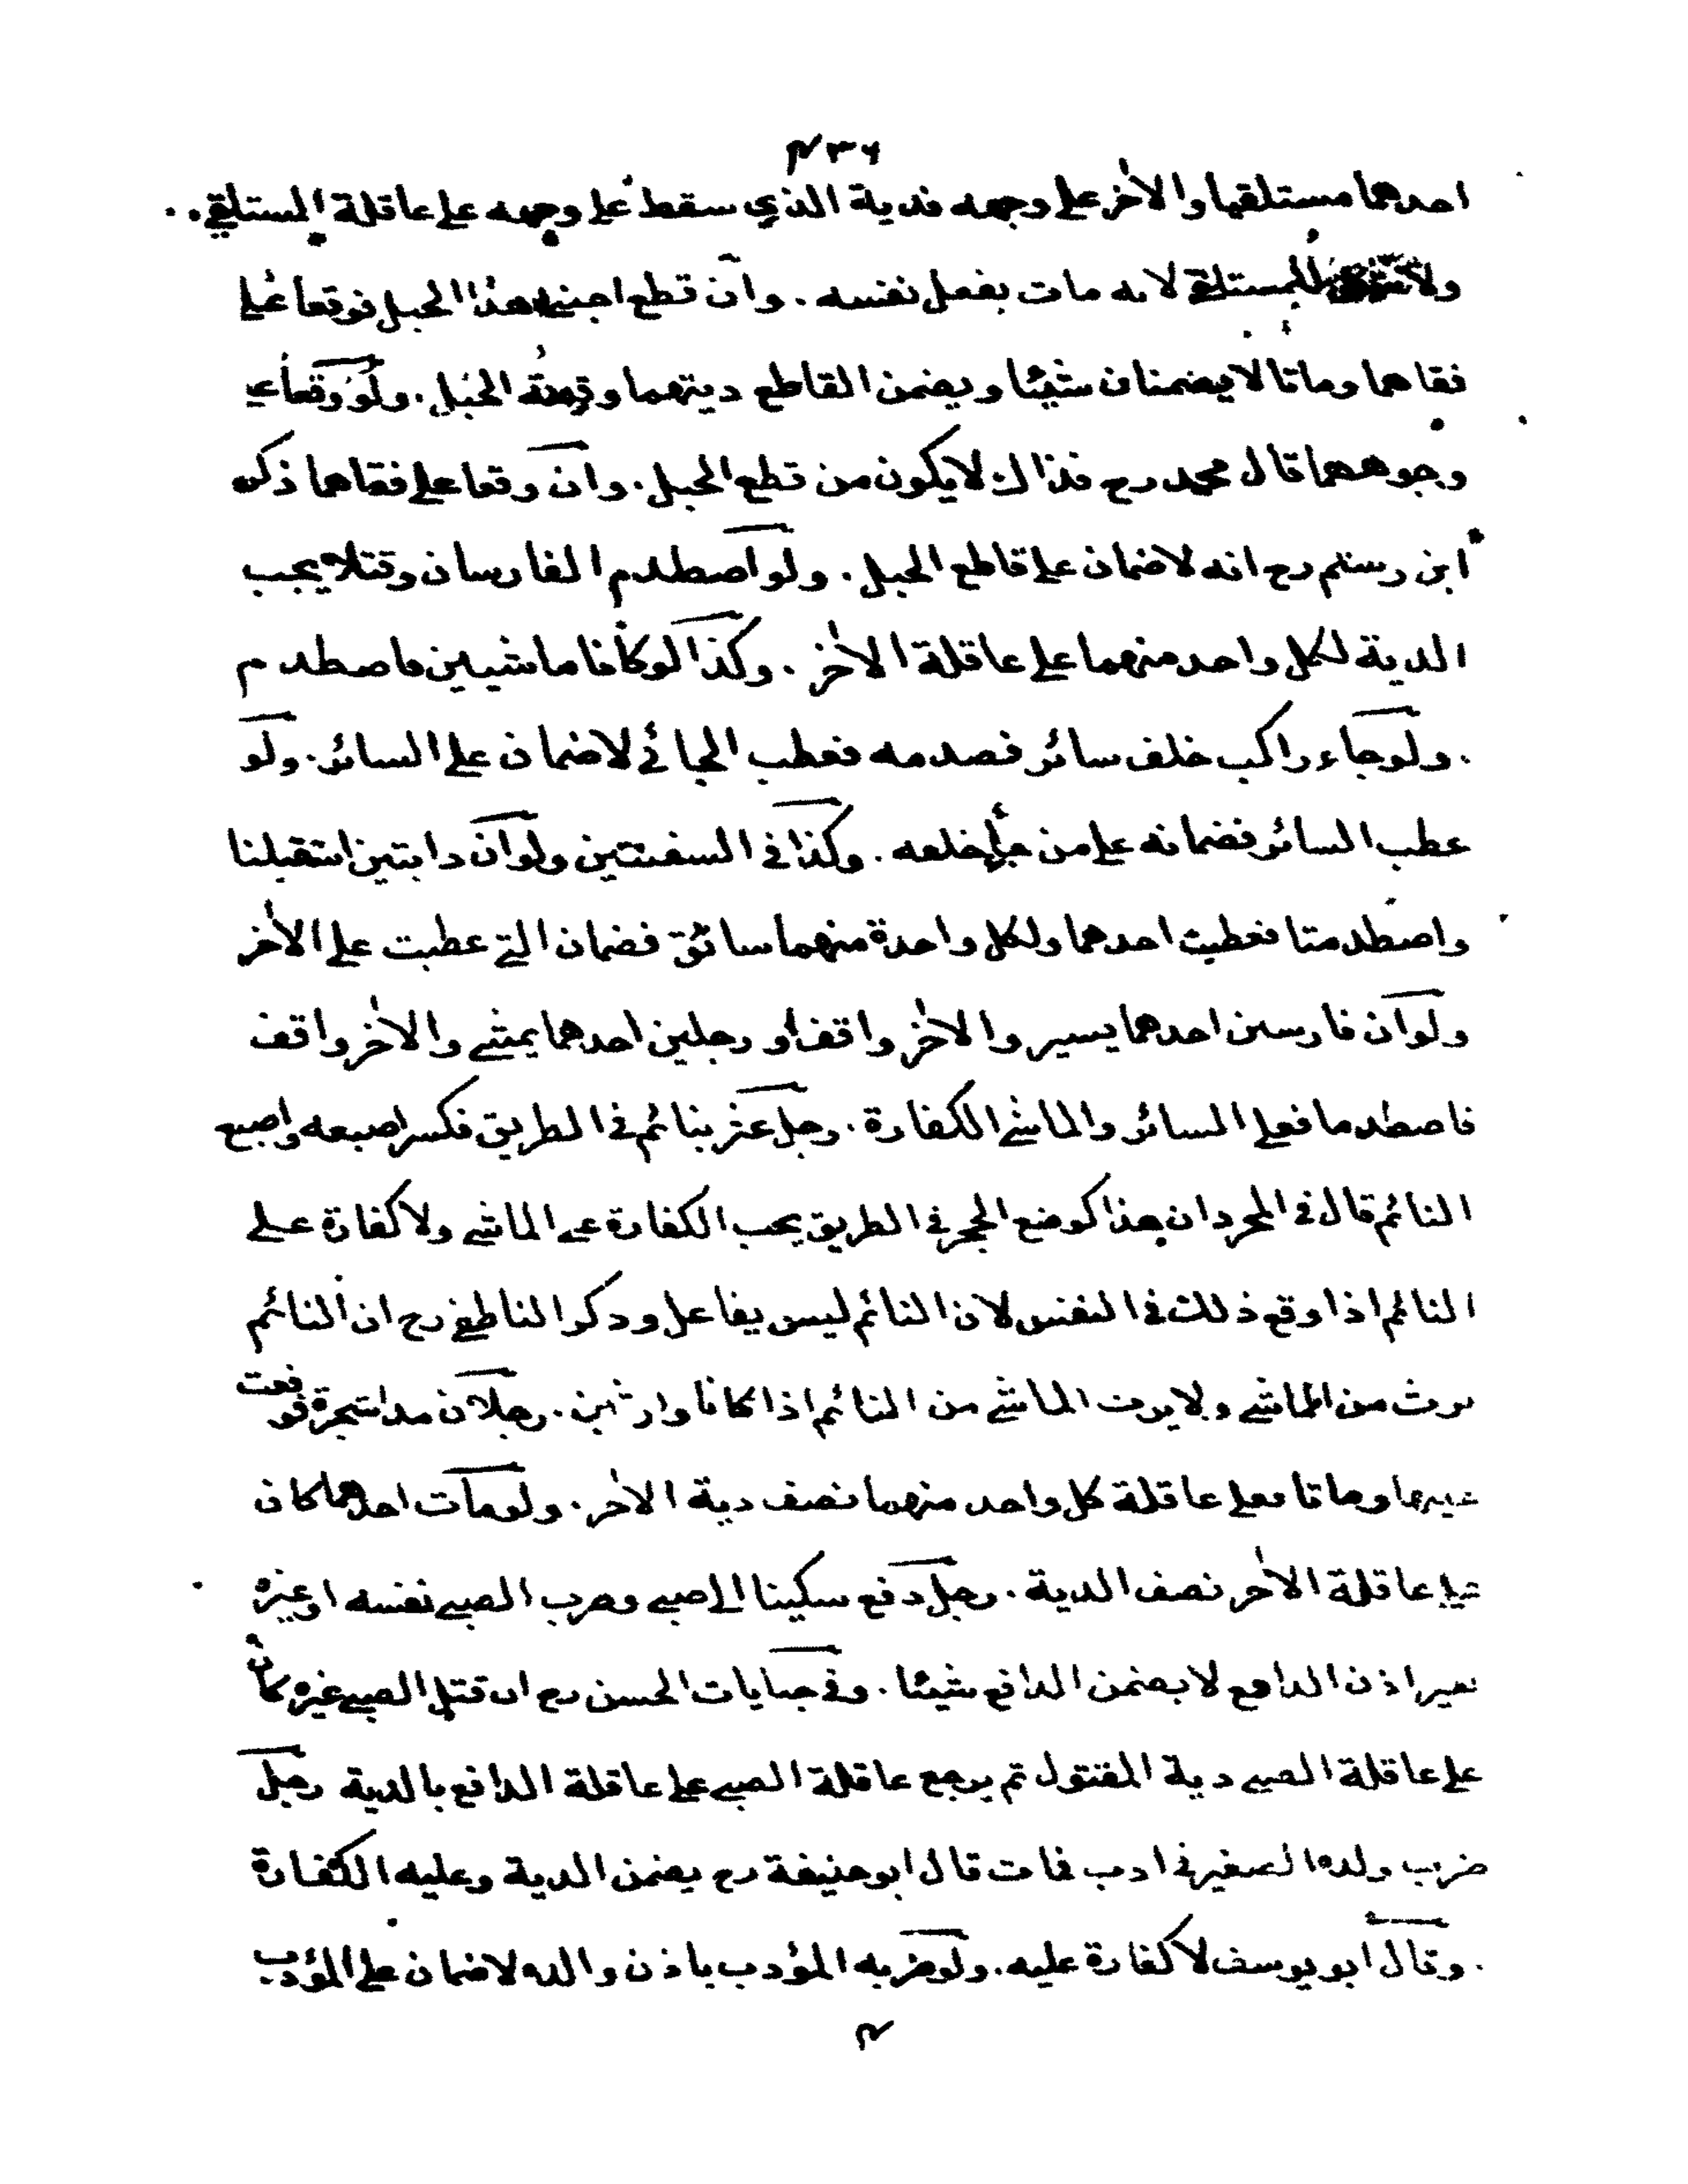 ٤٣٦
احدهما مستلقيا والاخر على وجهه فدية الذي سقط على وجهه على عاقلة المستلقي
ولا للمستلقي لانه مات بفعل نفسه . وان قطع اجنبي هذا الحبل فوقعا على
فقاهما وماتا لا يضمنان شيئا ويضمن القاطع ديتهما وقيمة الحبل . ولو وقعا على
وجوههما قال محمد رح فذاك لا يكون من قطع الحبل . وان وقعا على فقاهما ذكر
ابن رستم رح انه لا ضمان على قاطع الحبل . ولو اصطدم الفارسان وقتلا يجب
الدية لكل واحد منهما على عاقلة الاخر . وكذا لو كانا ماشيين فاصطدم
. ولو جاء راكب خلف سائر فصدمه فعطب الجائي لا ضمان على السائر . ولو
عطب السائر فضمانه على من جاء خلعه . وكذا في السفينتين ولو ان دابتين استقبلتا
واصطدمتا فعطبت احدهما ولكل واحدة منهما سائق فضمان التي عطبت على الاخر
ولو ان فارسين احدهما يسير والاخر واقف او رجلين احدهما يمشي والاخر واقف
فاصطدما فعلى السائر والماشي الكفارة . رجل عثر بنائم في الطريق فكسر اصبعه واصبع
النائم قال في المجرد ان هذا كوضع الحجر في الطريق يجب الكفارة على الماشي ولا كفارة على
النائم اذا وقع ذلك في النفس لان النائم ليس بفاعل وذكر الناطفي رح ان النائم
يرث من الماشي ولا يرث الماشي من النائم اذا كانا وارثين . رجلان مدا شجرة فوقعت
عليهما وماتا فعلى عاقلة كل واحد منهما نصف دية الاخر . ولو مات احدهما كان
على عاقلة الاخر نصف الدية . رجل دفع سكينا الى صبي وضرب الصبي نفسه او غيره
بغير اذن الدافع لا يضمن الدافع شيئا . وفي جنايات الحسن رح ان قتل الصبي غيره كان
على عاقلة الصبي دية المقتول ثم يرجع عاقلة الصبي على عاقلة الدافع بالدية رجل
ضرب ولده الصغير في ادب فمات قال ابو حنيفة رح يضمن الدية وعليه الكفارة
. وقال ابو يوسف لا كفارة عليه . ولو ضربه المؤدب باذن والده لا ضمان على المؤدب